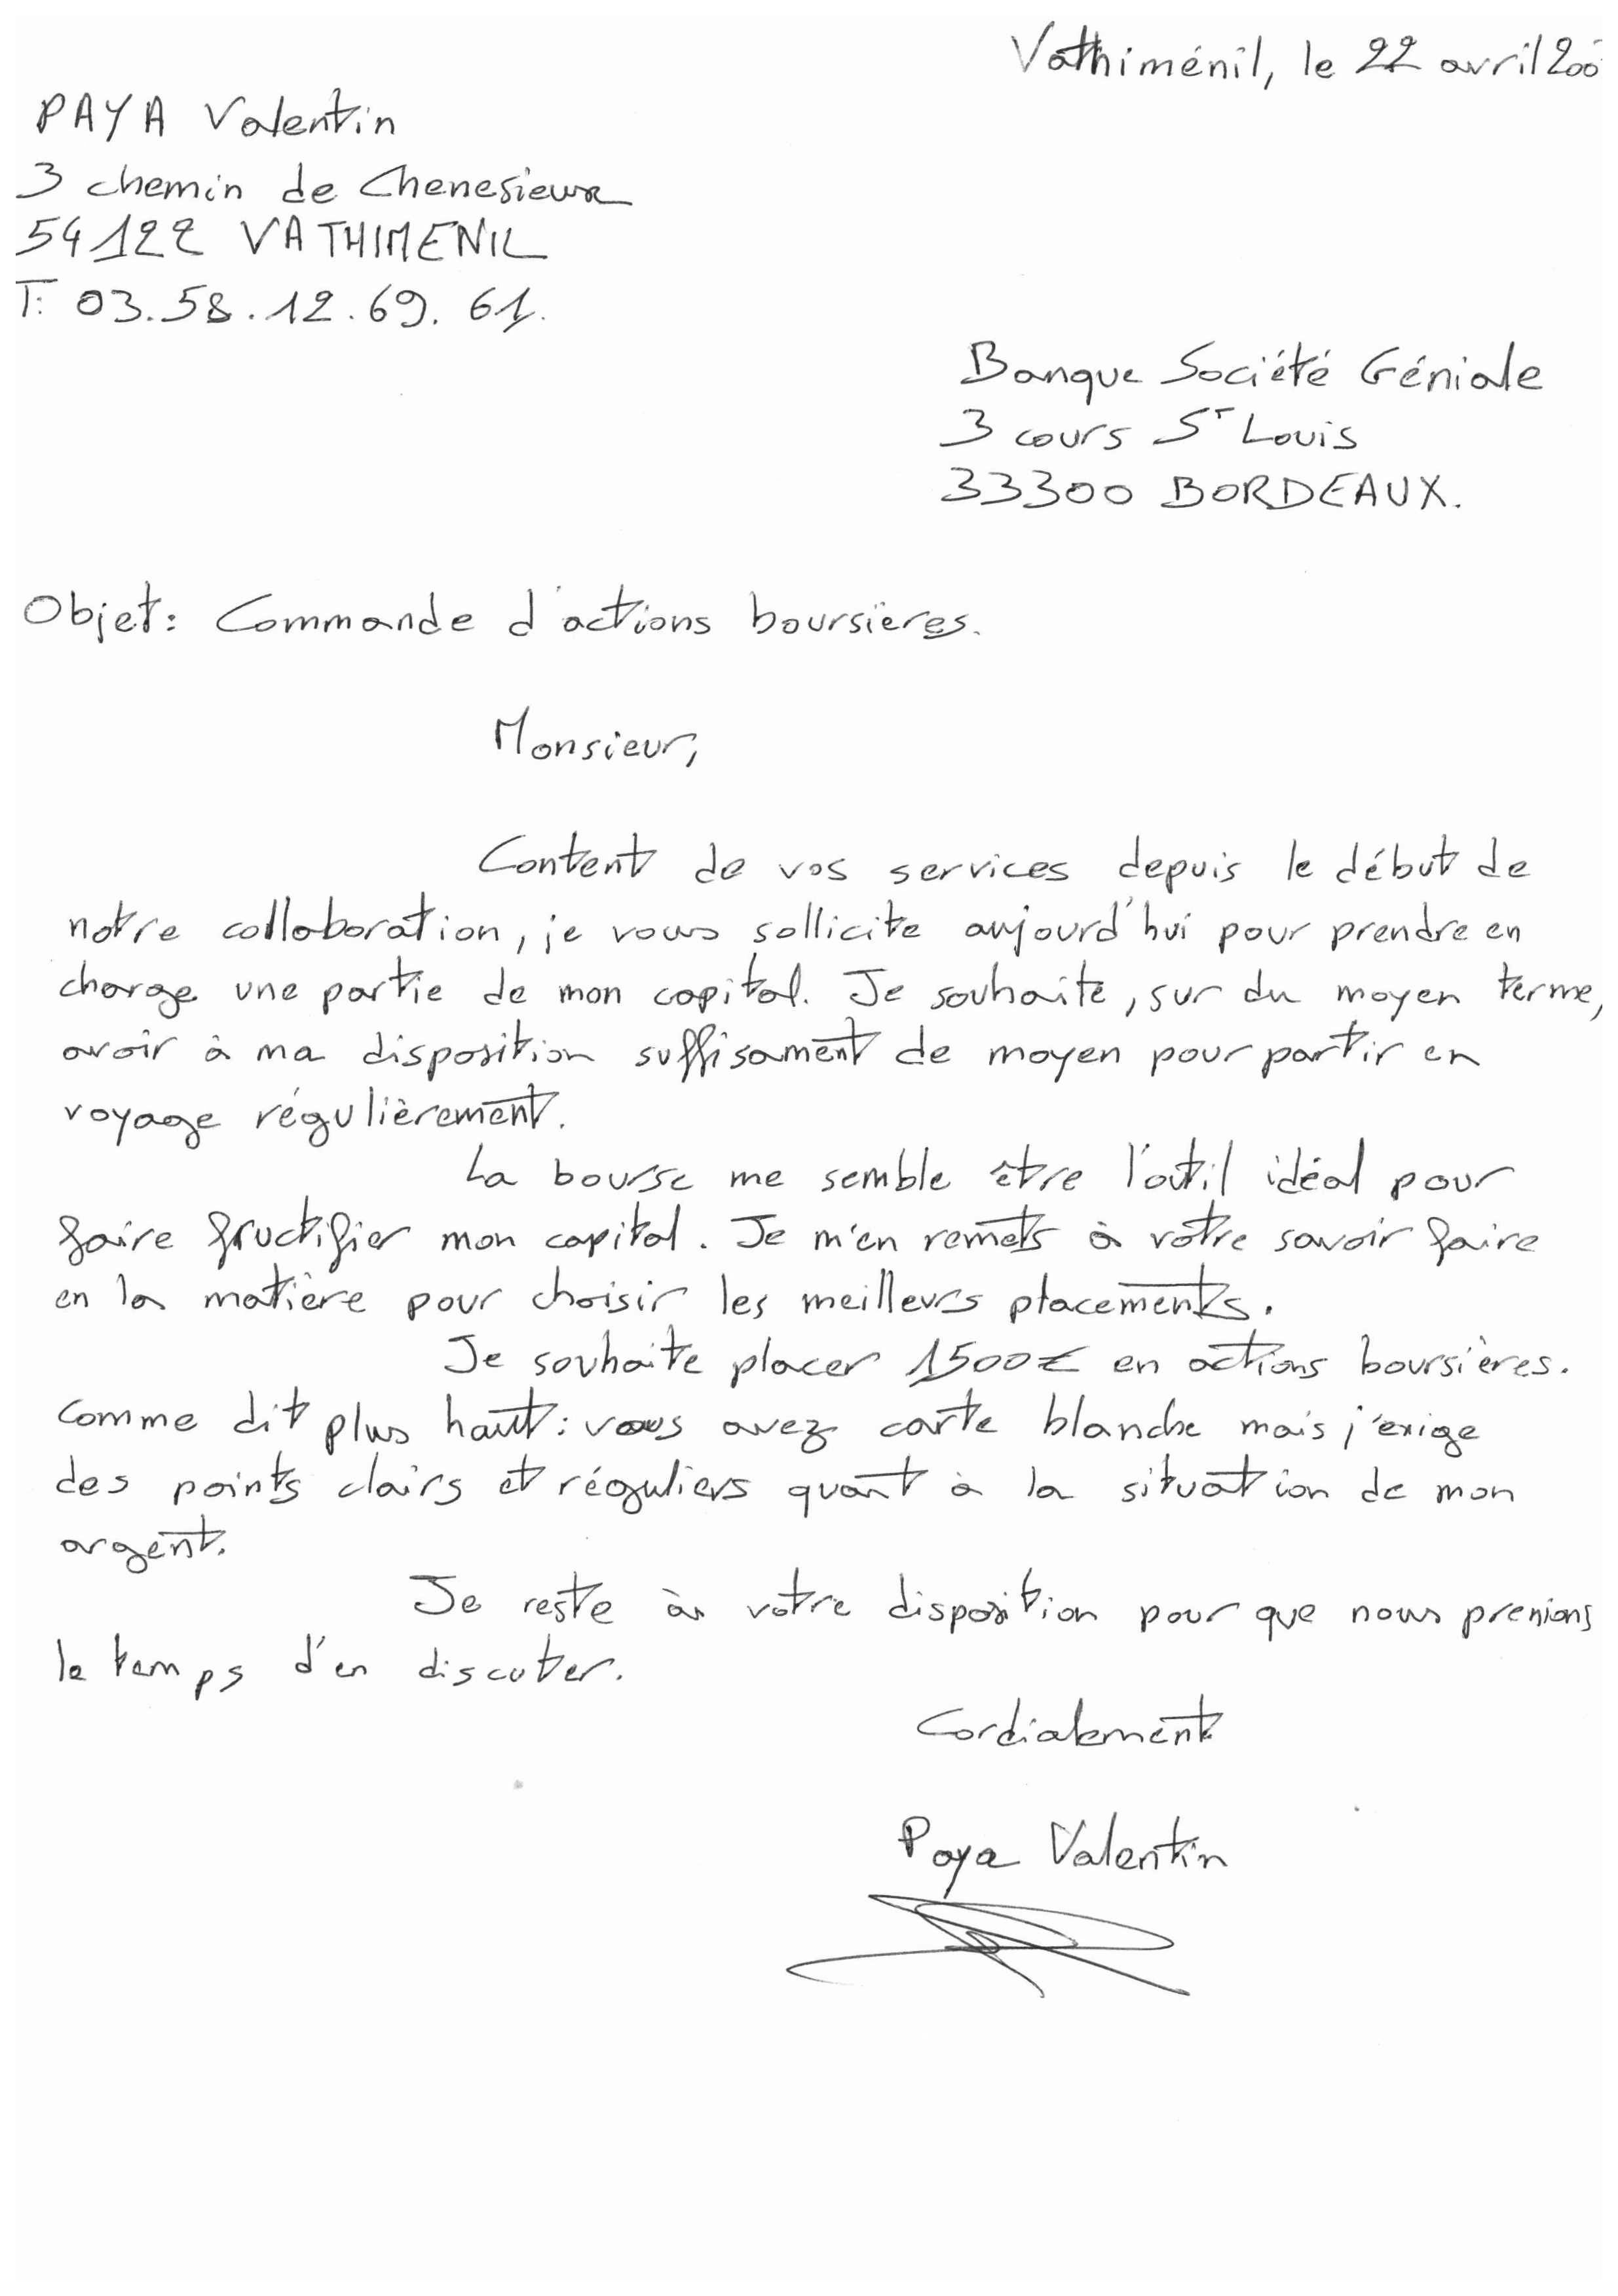 Vathiménil, le 22 avril 200
PAYA Valentin
3 chemin de Chenesieux
54122 VATHIMENIL
T: 03.58.12.69.61.
Banque Société Géniale
3 cours St Louis
33300 BORDEAUX.
Objet: Commande d'actions boursières.
Monsieur,
Content de vos services depuis le début de
notre collaboration, je vous sollicite aujourd'hui pour prendre en
charge une partie de mon capital. Je souhaite, sur du moyen terme,
avoir à ma disposition suffisament de moyen pour partir en
voyage régulièrement.
La bourse me semble être l'outil idéal pour
faire fructifier mon capital. Je m'en remets à votre savoir faire
en la matière pour choisir les meilleurs placements.
Je souhaite placer 1500€ en actions boursières.
Comme dit plus haut: vous avez carte blanche mais j'exige
des points clairs et réguliers quant à la situation de mon
argent.
Je reste à votre disposition pour que nous prenions
le temps d'en discuter.
Cordialement
Paya Valentin